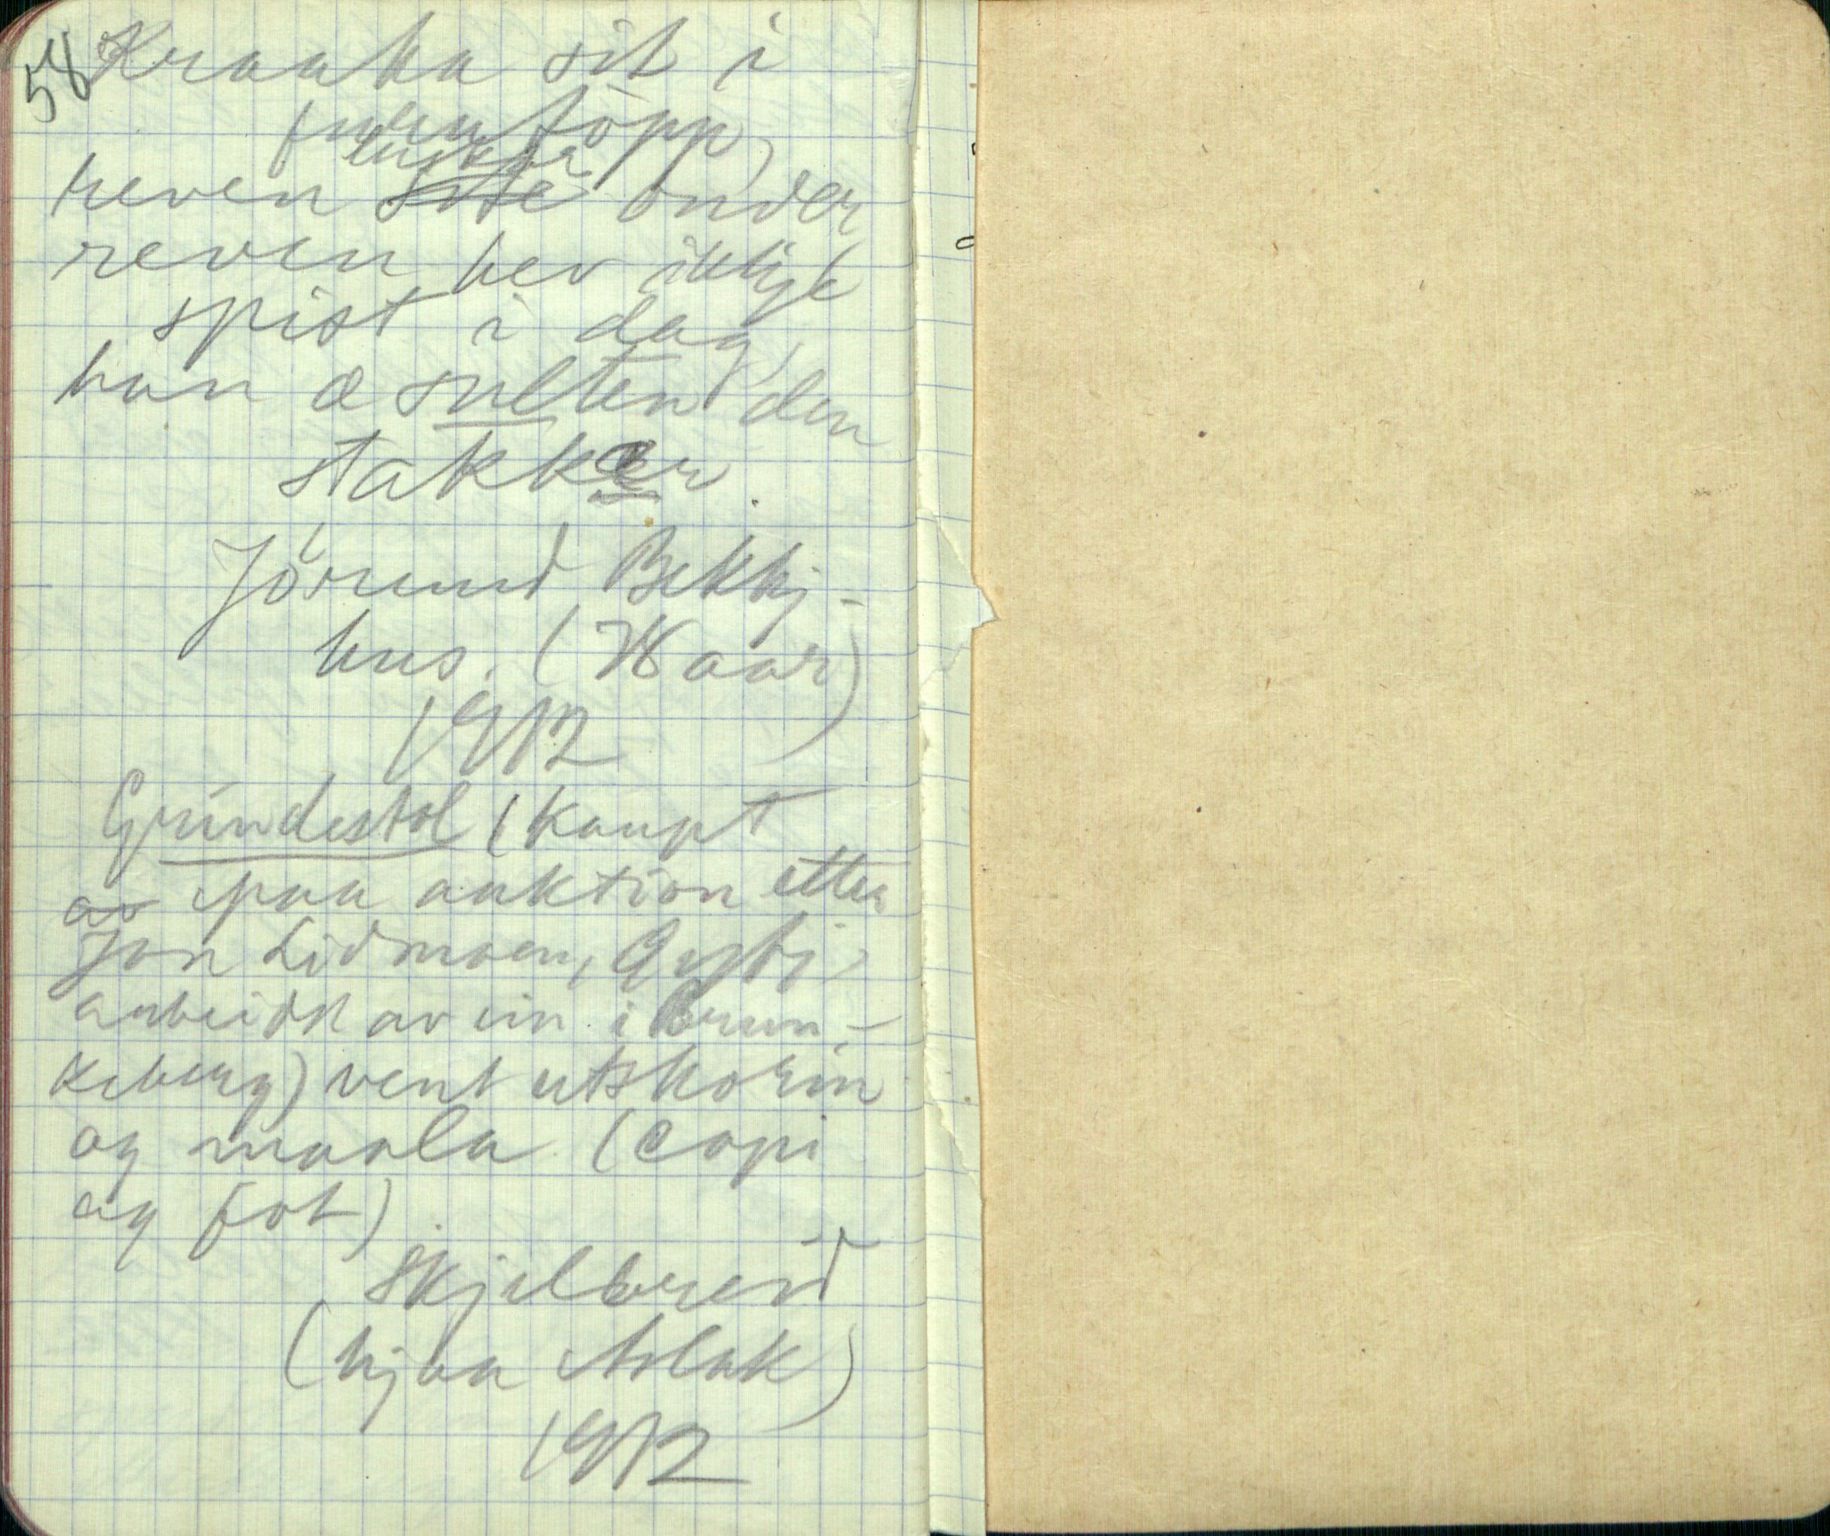 58
Kraaka sit i
furutopp,
luskar
reven site onder
reven hev ikkje
spist i dag,
han æ sulten den
stakker.
Jórund Bekkj-
hus. (Haar)
1912
Grúndestol (kaupt
av paa auktion etter
Jon Lidmoen,
arbeidt av ein i Brun-
keberg) vent utskorin
og maala (copi
og fot)
Skjelbreid
(hjaa Aslak)
1912